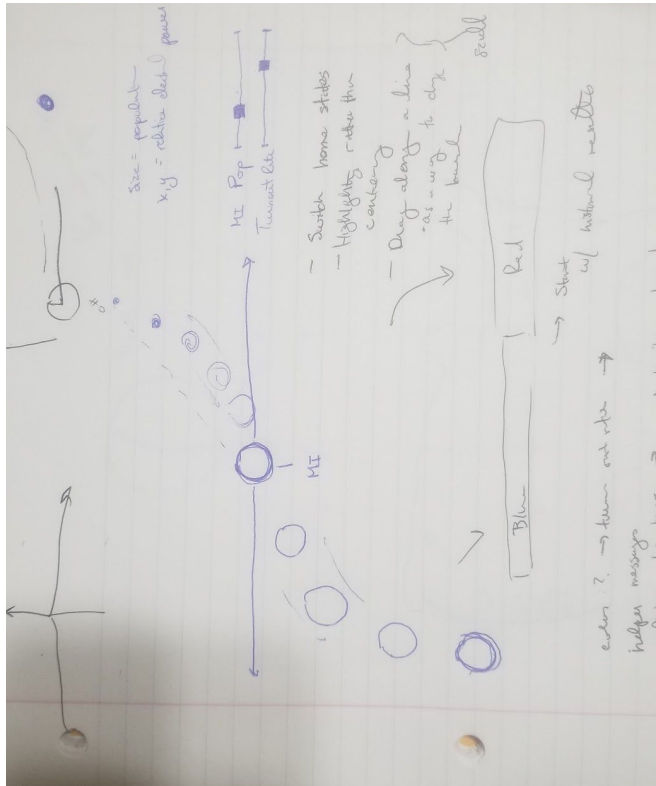 Size = populat
x,y = relative elect power
MI Pop
Turnout Rate
MI
- Switch home states
- Highlighting rather than
centering
- Drag along a line
as a way to change
the bunch
scull
Blue
Red
→ Start
w/ historical results
→ turn out rate →
helper messages